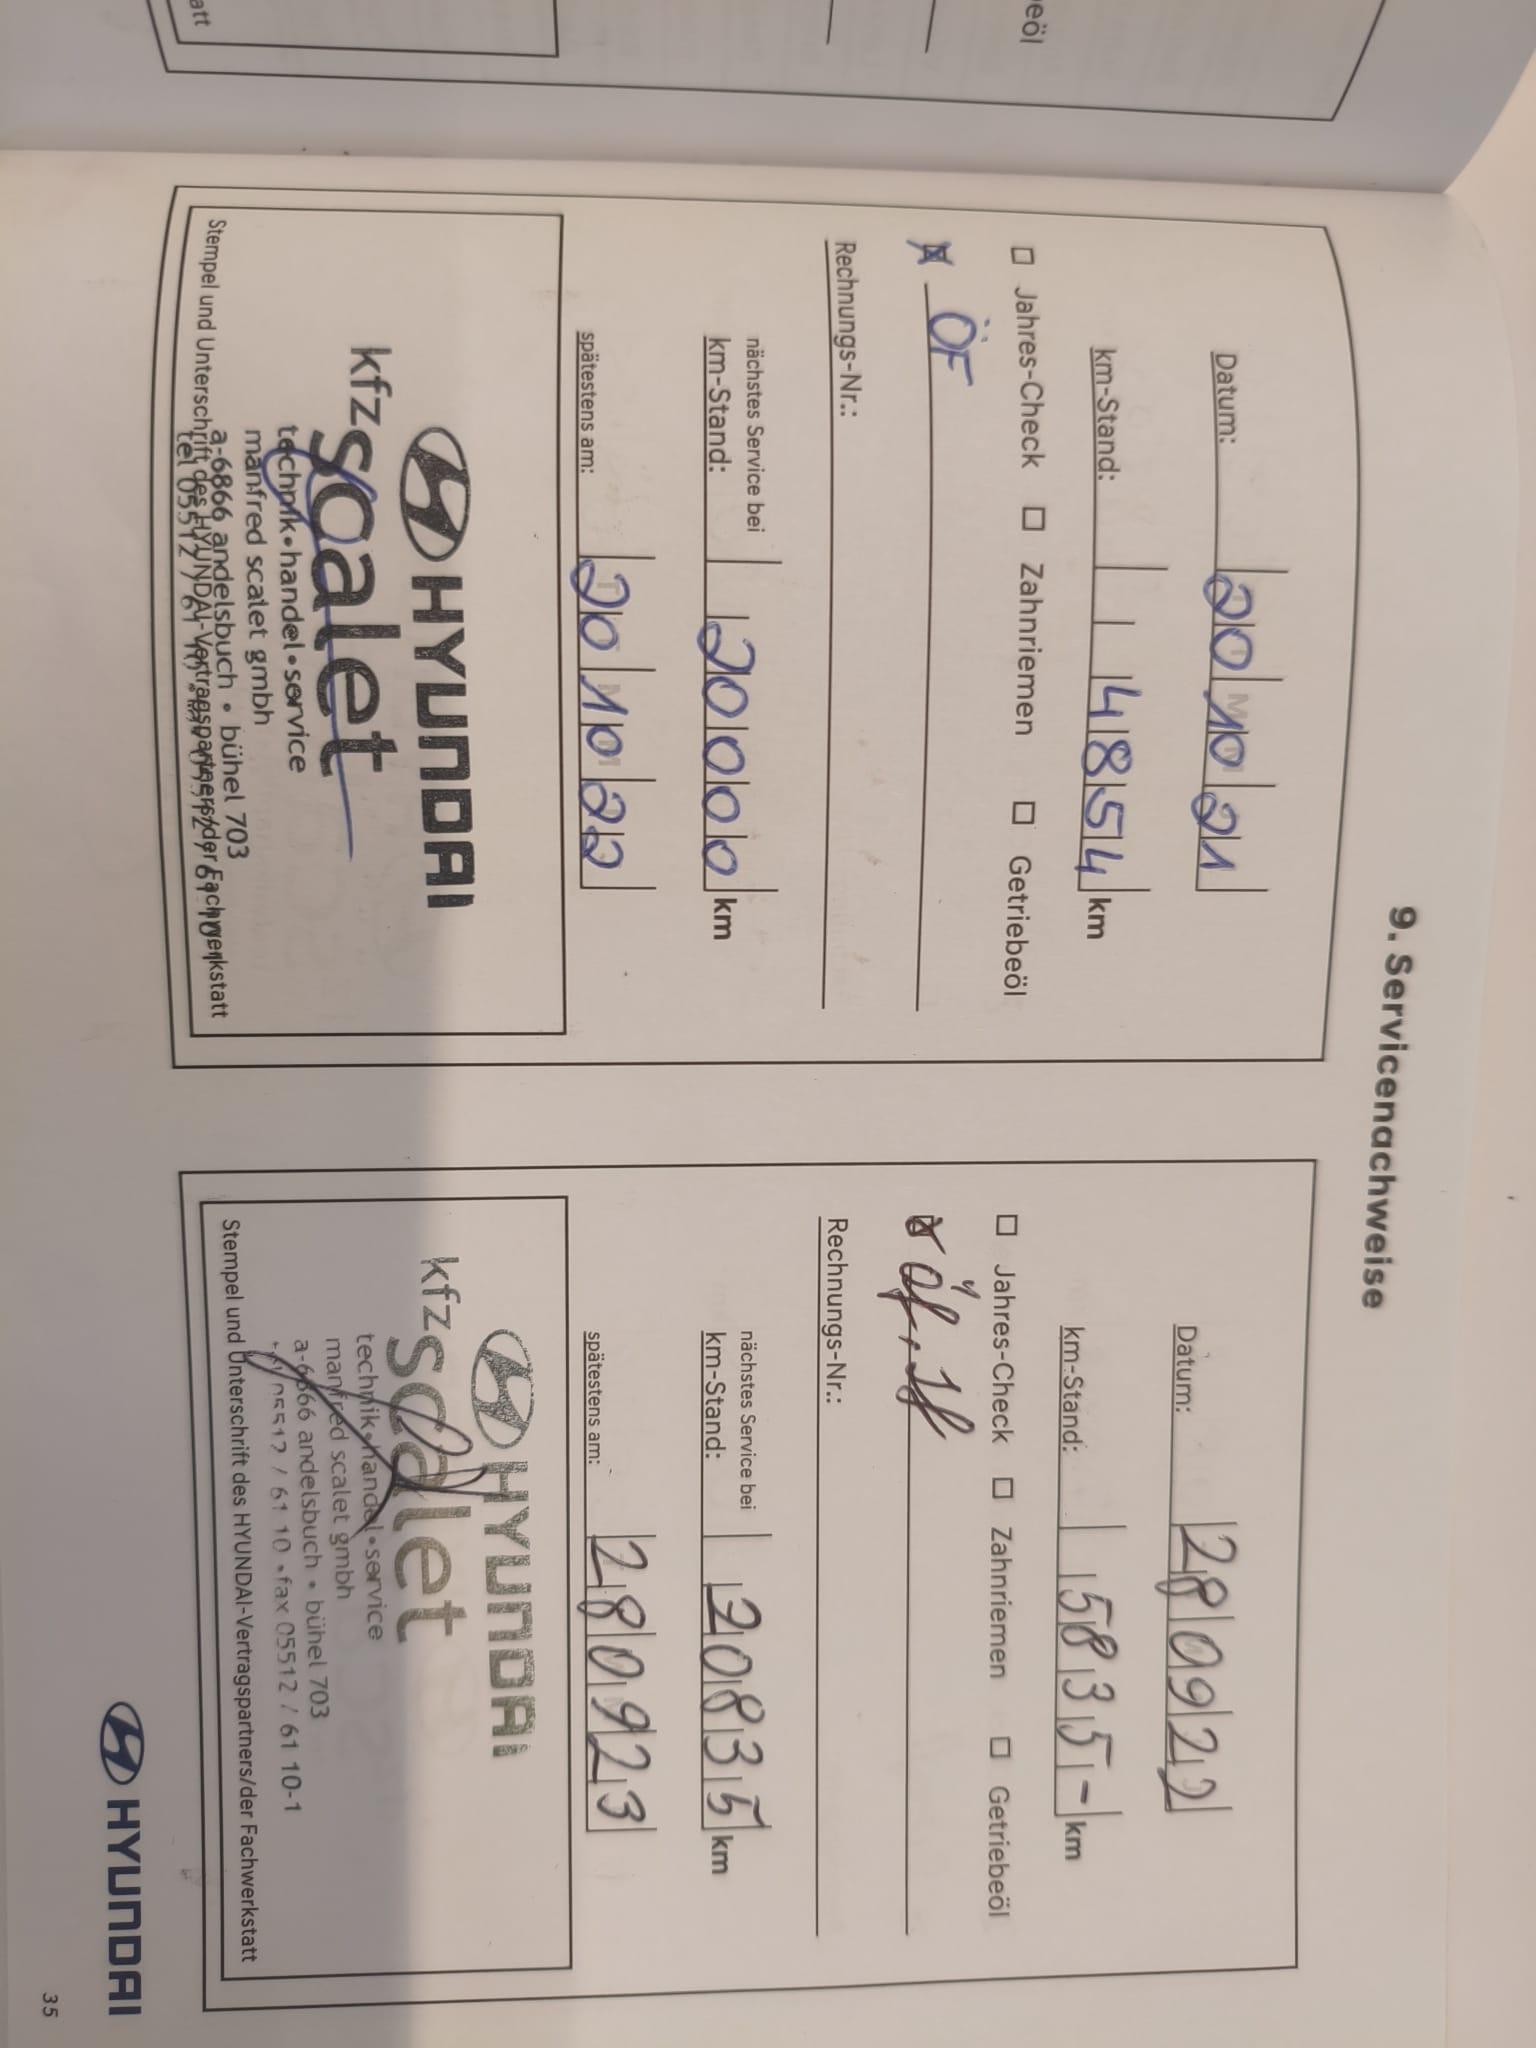 eöl
att
9. Servicenachweise
Datum: 20 10 21
km-Stand: 4854 km
Jahres-Check Zahnriemen Getriebeöl
ÖF
Rechnungs-Nr.:
nächstes Service bei
km-Stand: 20000 km
spätestens am: 20 10 22
HYUNDAI
kfz scalet
technik•handel•service
manfred scalet gmbh
a-6866 andelsbuch • bühel 703
tel 05512 / 61 10
Stempel und Unterschrift des HYUNDAI-Vertragspartners/der Fachwerkstatt
Datum: 28 09 22
km-Stand: 5835- km
Jahres-Check Zahnriemen Getriebeöl
Rechnungs-Nr.:
nächstes Service bei
km-Stand: 20835 km
spätestens am: 28 09 23
HYUNDAI
kfz scalet
technik•handel•service
manfred scalet gmbh
a-6866 andelsbuch • bühel 703
05512 / 61 10 • fax 05512 / 61 10-1
Stempel und Unterschrift des HYUNDAI-Vertragspartners/der Fachwerkstatt
HYUNDAI
35